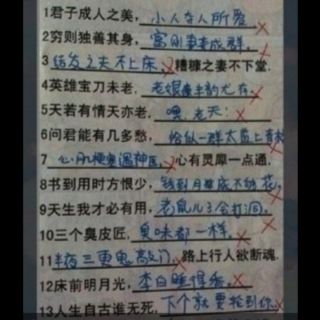 1君子成人之美，小人夺人所爱
2穷则独善其身，富则妻妾成群。
3结发之夫不上床，糟糠之妻不下堂.
4英雄宝刀未老，老娘半韵尤存
5天若有情天亦老，噢，老天!
6问君能有几多愁，恰似一群太监上青楼
7心肌梗塞遇神医，心有灵犀一点通.
8书到用时方恨少，钱到月底不够花，
9天生我才必有用，老鼠儿子会打洞，
10三个臭皮匠，臭味都一样.
11半夜三更鬼敲门，路上行人欲断魂.
12床前明月光，李白睡得香.
13人生自古谁无死，下个就要轮到你